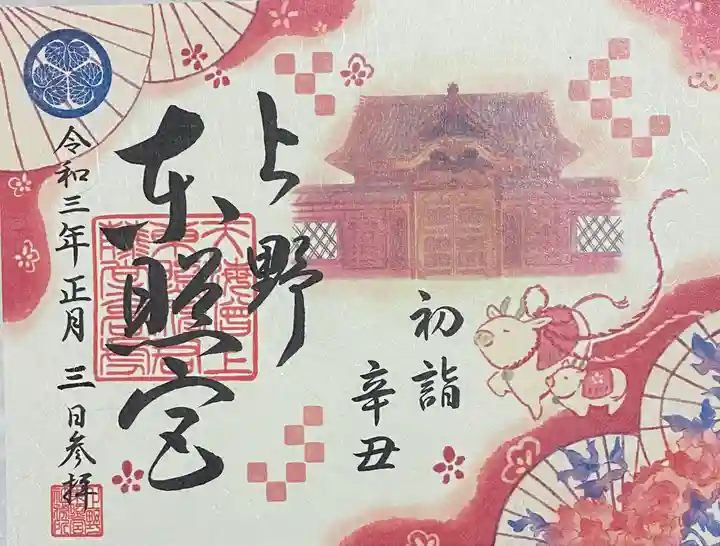 初詣
辛丑
上野
東照宮
令和三年正月三日参拝